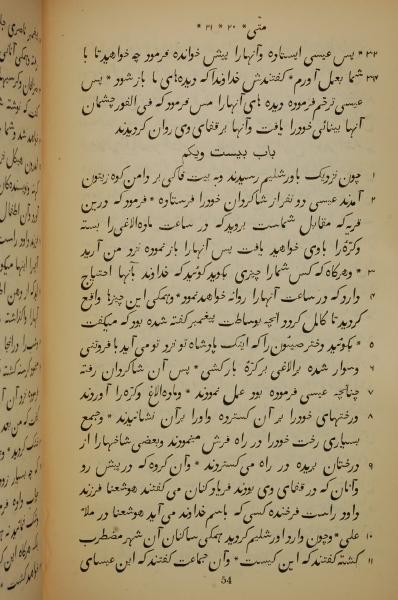 متی * ۲۰ * ۲۱ *
۳۲ * پس عیسی ایستاده و آنها را پیش خوانده فرمود چه خواهید تا با
۳۳ شما بعمل آورم * گفتندش خداوندا که دیده های ما باز شود * پس
عیسی ترحم فرموده دیده های آنها را مس فرمود که فی الفور چشمان
آنها بینائی خود را یافت و آنها بر قفای وی روان کردیدند
باب بیست ویکم
۱ چون نزدیک باورشلیم رسیدند و به بیت فاکی بر دامن کوه زیتون
۲ آمدند عیسی دو نفر از شاکردان خود را فرستاده * فرمود که درین
قریه که مقابل شماست بروید که در ساعت ماده الاغی را بسته
وکرّه را باوی خواهید یافت پس آنها را باز نموده نزد من آرید
۳ * و هرکاه که کس شما را چیزی بکوید کوئید که خداوند بآنها احتیاج
۴ دارد که در ساعت آنها را روانه خواهد نمود * وهمکی این چیزها واقع
کردید تا کامل کردد آنچه بوساطت پیغمبر کفته شده بود که میکفت
۵ * بکوئید دختر صیئون را که اینک پادشاه تو نزد تو می آید با فروتنی
۶ وسوار شده بر الاغی بر کرّهٔ بارکشی * پس آن شاکردان رفته
۷ چنانچه عیسی فرموده بود عمل نمودند * وماده الاغ وکرّه را آوردند
۸ ورختهای خود را بر آن کسترده واو را بر آن نشانیدند * وجمع
بسیاری رخت خود را در راه فرش مینمودند وبعضی شاخها را از
۹ درختان بریده در راه می کستردند * وآن کروه که در پیش رو
وآنان که در قفای وی بودند فریاد کنان می کفتند هوشعنا فرزند
داود راست فرخنده کسی که باسم خداوند می آید هوشعنا در ملاء
۱۰ علی * وچون وارد اورشلیم کردید همکی ساکنان آن شهر مضطرب
۱۱ کشته کفتند که این کیست * وآن جماعت کفتند که این عیسای
54